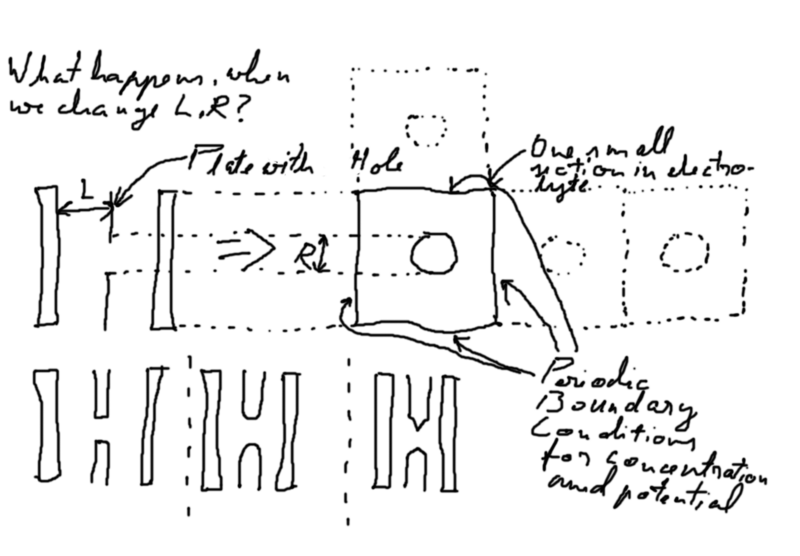 What happens, when
we change L,R?
Plate with Hole
One small
section in electro-
lyte
L
R
Periodic
Boundary
Conditions
for concentration
and potential